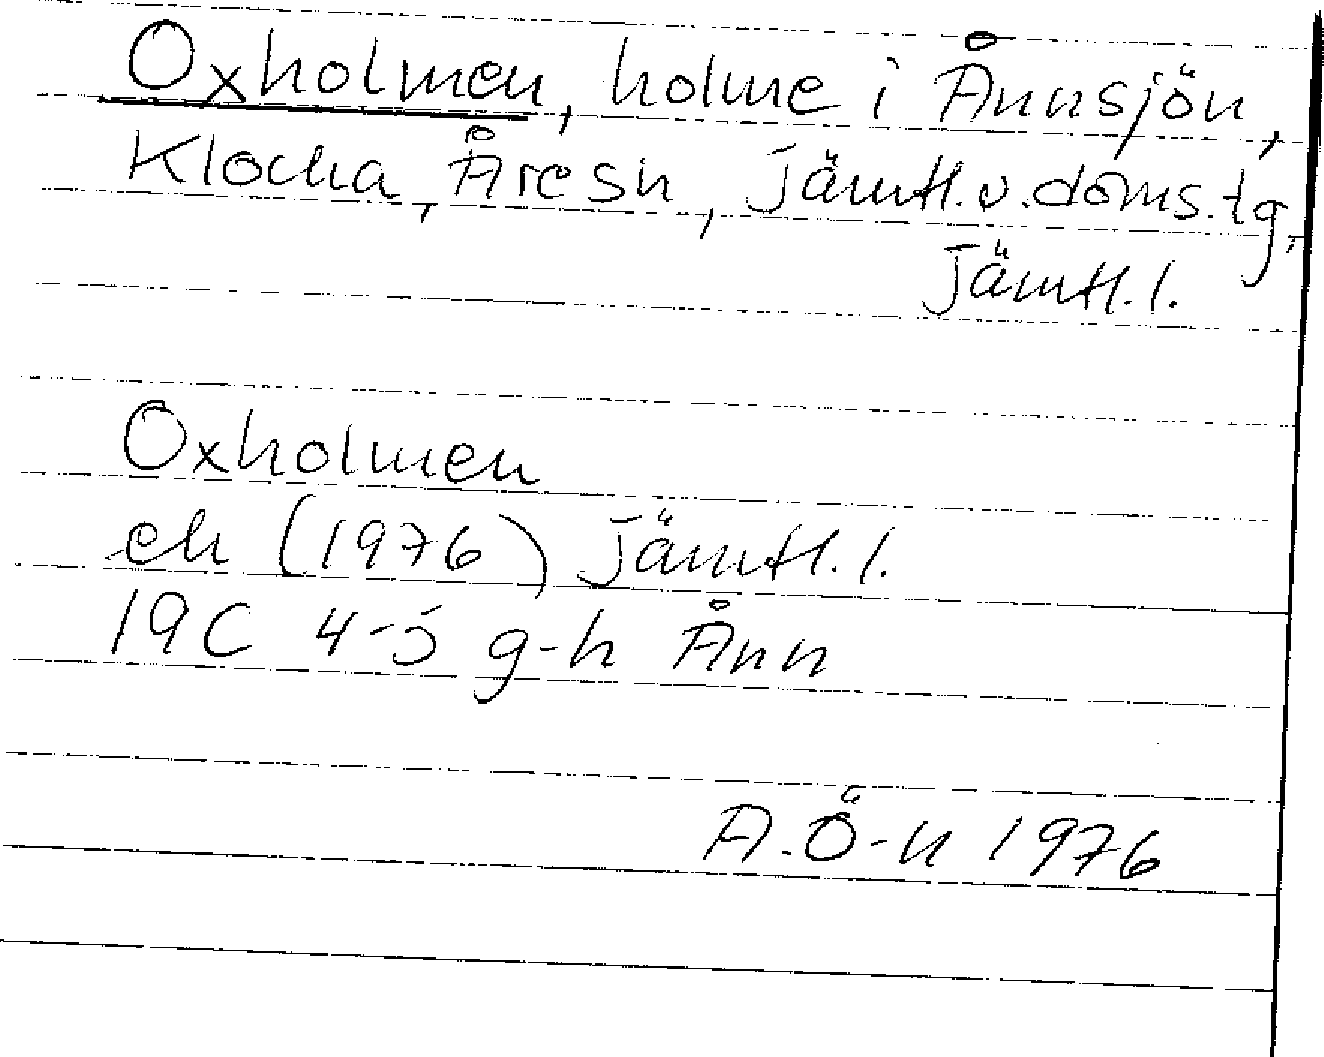 Oxholmen, holme i Ånnsjön,
Klocka, Åre sn, Jämtl.v.doms.tg,
Jämtl.l.
Oxholmen
ek (1976) Jämtl.l.
19C 4-5 g-h Ånn
A.Ö-n 1976